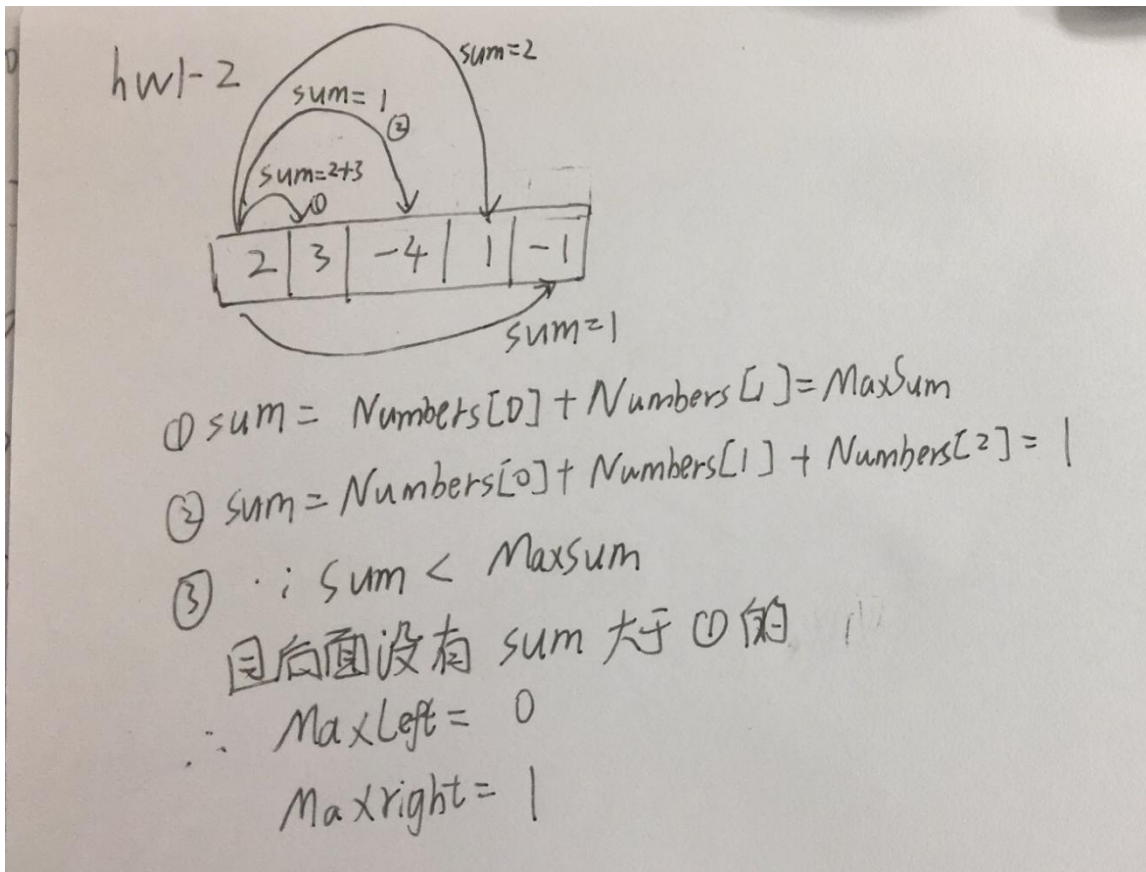 hw1-2
sum=2
sum=1
②
sum=2+3
①
2 3 -4 1 -1
sum=1
① sum = Numbers[0] + Numbers[1] = MaxSum
② sum = Numbers[0] + Numbers[1] + Numbers[2] = 1
③ ∵ sum < Maxsum
且后面没有 sum 大于 ① 的
∴ MaxLeft = 0
Maxright = 1